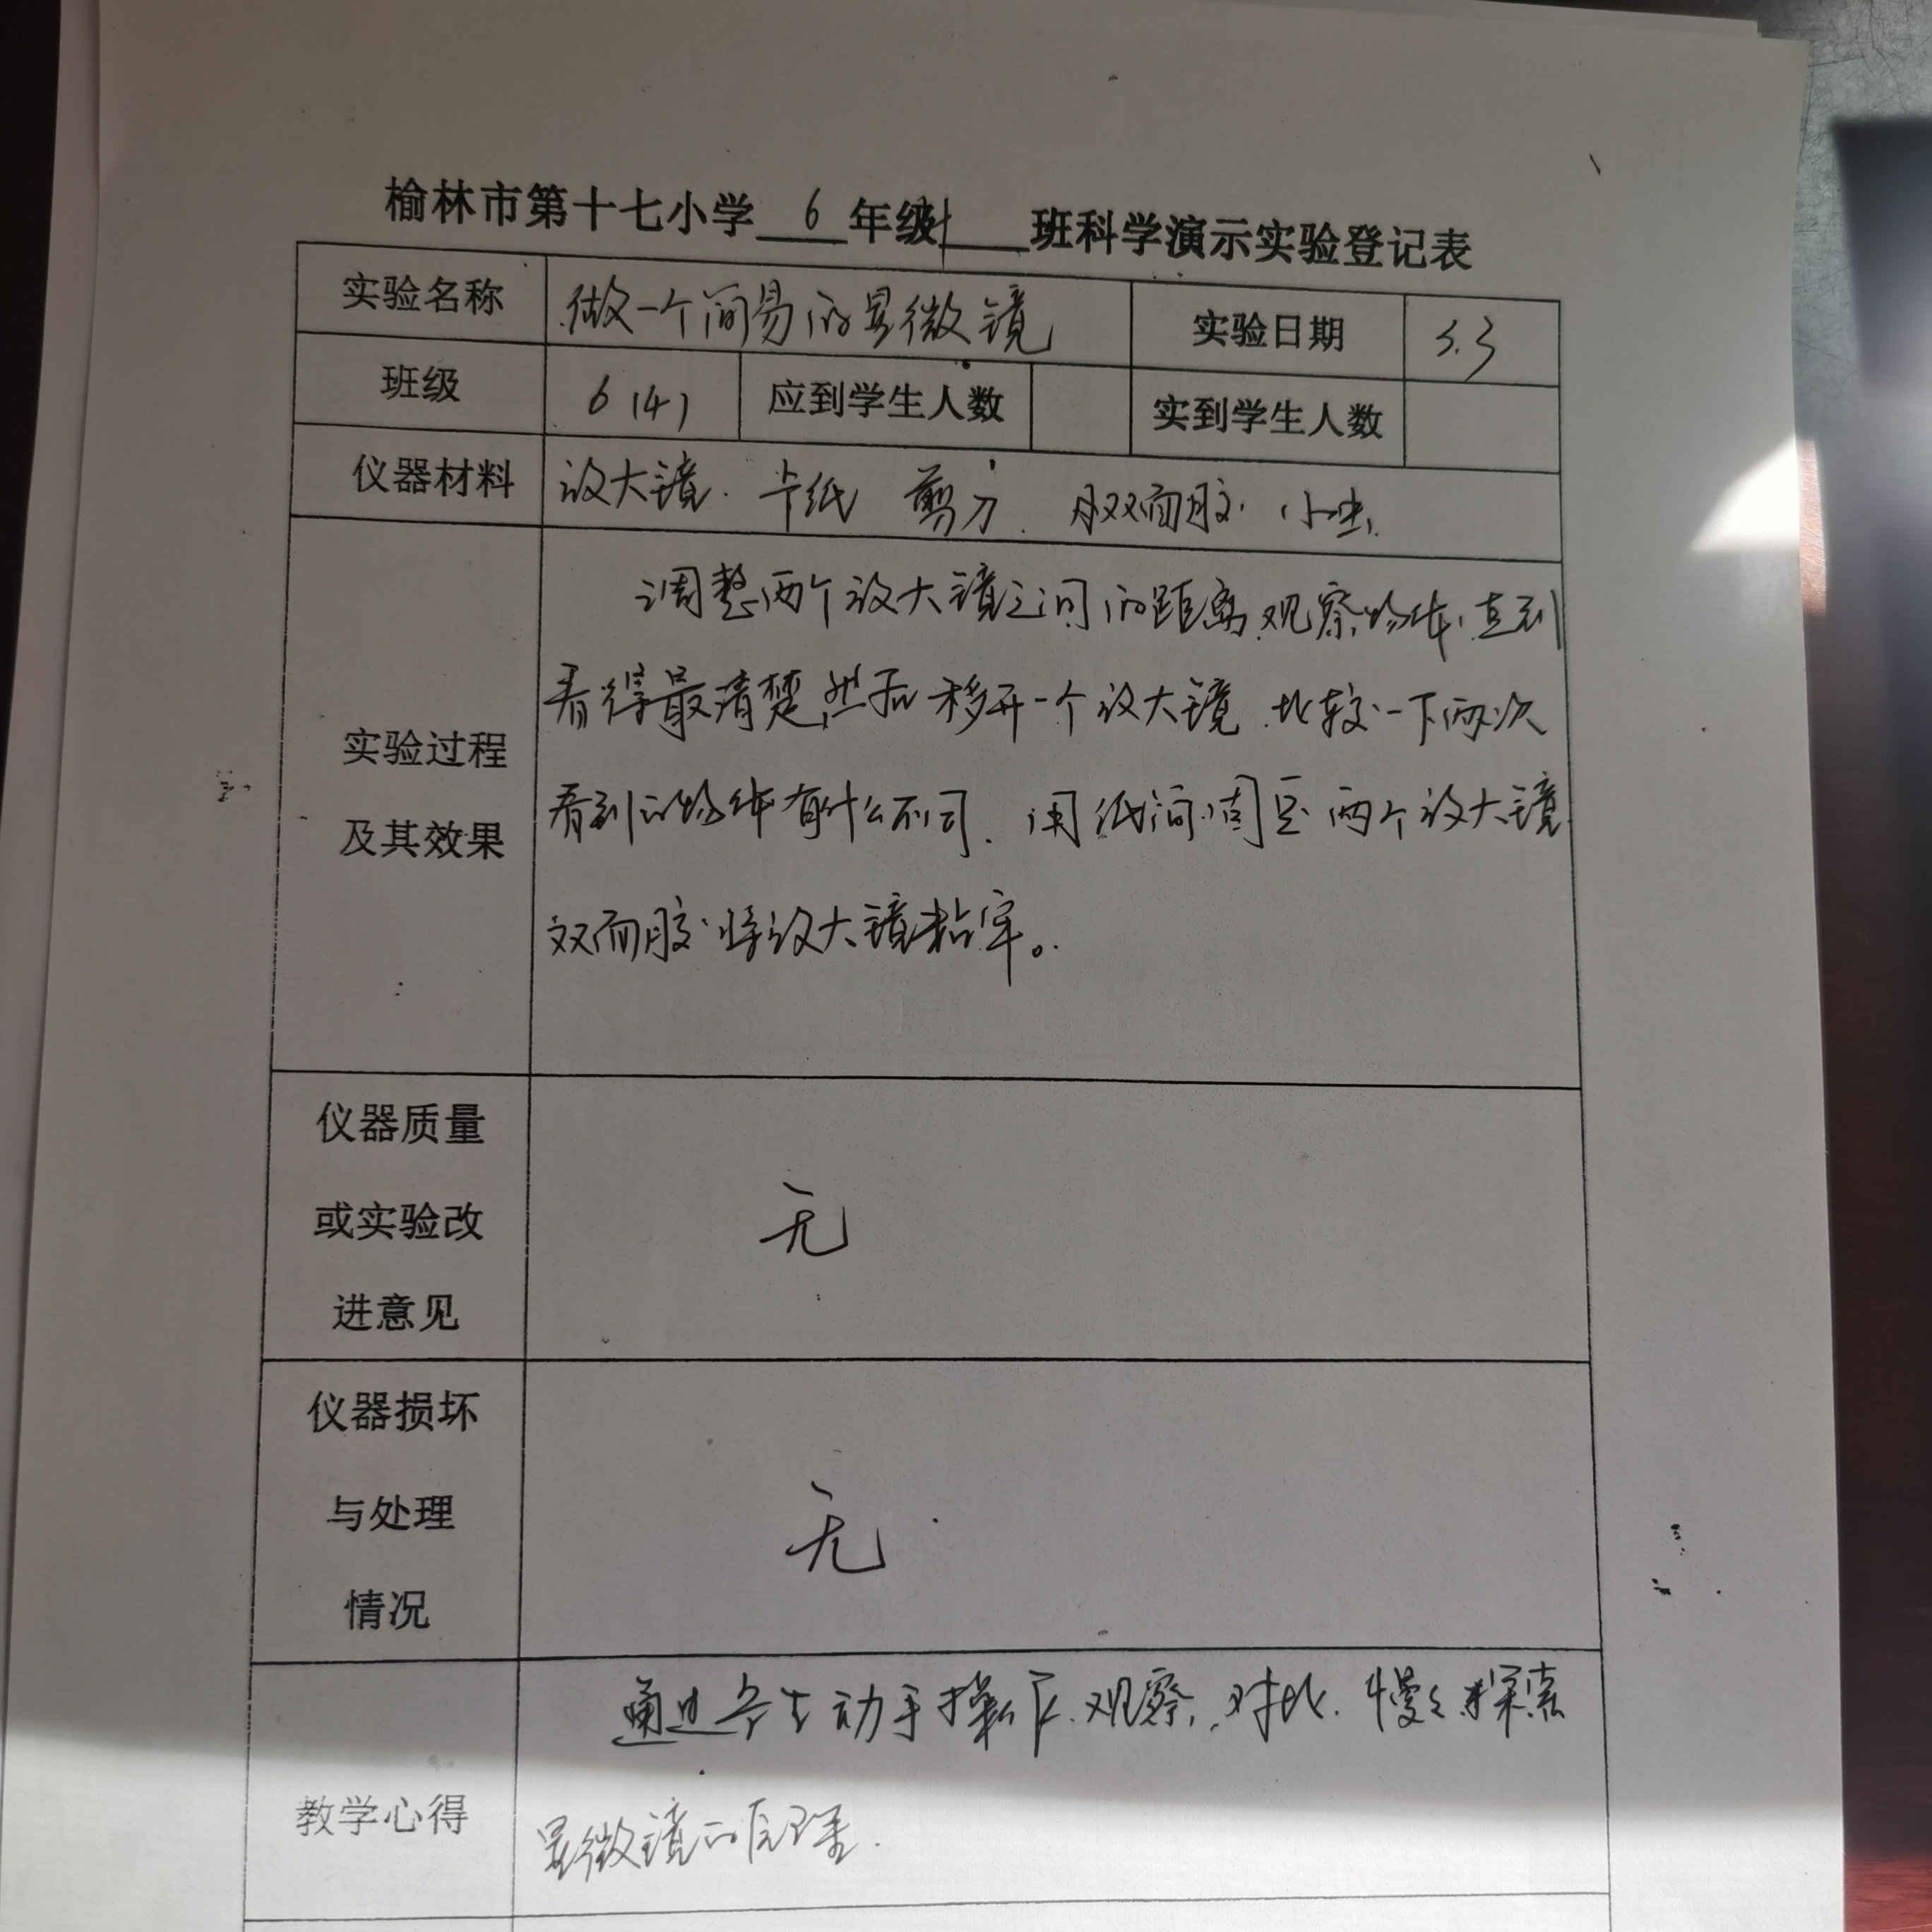 榆林市第十七小学 6 年级 4 班科学演示实验登记表
实验名称 做一个简易的显微镜 实验日期 3.3
班级 6(4) 应到学生人数 实到学生人数
仪器材料 放大镜. 卡纸 剪刀. 双面胶. 小虫.
调整两个放大镜之间的距离,观察物体,直到
看得最清楚,然后移开一个放大镜.比较一下两次
实验过程
看到的物体有什么不同. 用纸筒固定两个放大镜.
及其效果
双面胶将放大镜粘牢。
仪器质量
或实验改
无
进意见
仪器损坏
与处理
无
情况
通过学生动手操作.观察.对比.慢慢探索
教学心得
显微镜的原理.